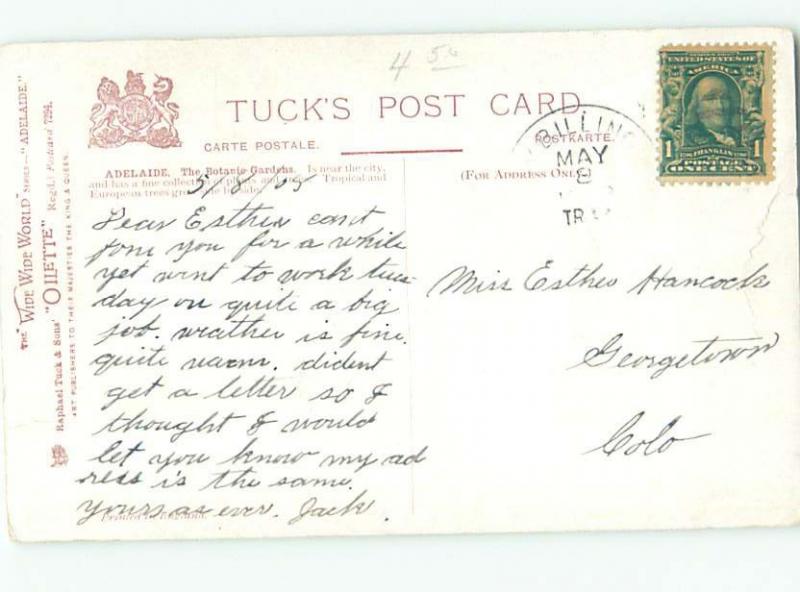 4 50
TUCK'S POST CARD
CARTE POSTALE.
POSTKARTE.
ADELAIDE, The Botanic Gardens. Is near the city,
and has a fine collection of plants and Tropical and
European trees grow side by side.
(FOR ADDRESS ONLY)
BILLING
MAY
8
TR
UNITED STATES OF
AMERICA
1 1
FRANKLIN
POSTAGE
ONE CENT
THE "WIDE WIDE WORLD" SERIES—"ADELAIDE."
Raphael Tuck & Sons' "OILETTE" Regd. Postcard 7294.
ART PUBLISHERS TO THEIR MAJESTIES THE KING & QUEEN.
5/8/05
Dear Esther cant
join you for a while
yet went to work tues
day on quite a big
job. weather is fine.
quite warm. dident
get a letter so I
thought I would
let you know my ad
ress is the same.
Yours as ever. Jack.
Miss Esther Hancock
Georgetown
Colo